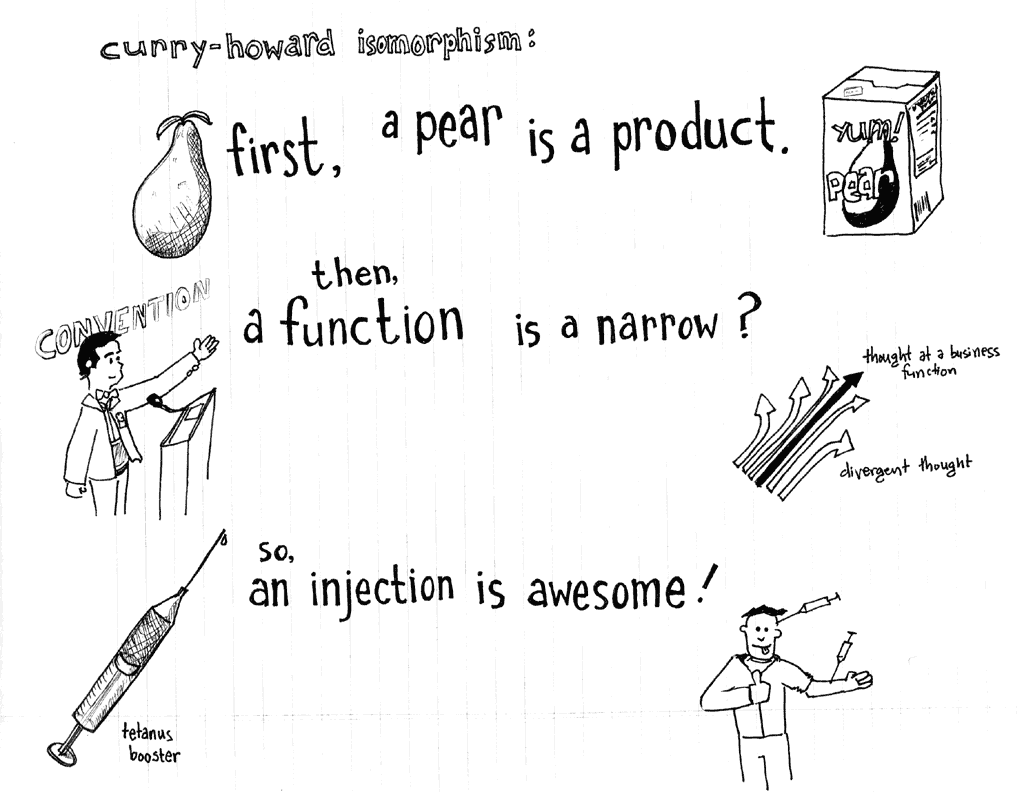 curry-howard isomorphism:
first, a pear is a product.
yum!
pear
then,
CONVENTION
a function is a narrow?
thought at a business
function
divergent thought
so,
an injection is awesome!
tetanus
booster